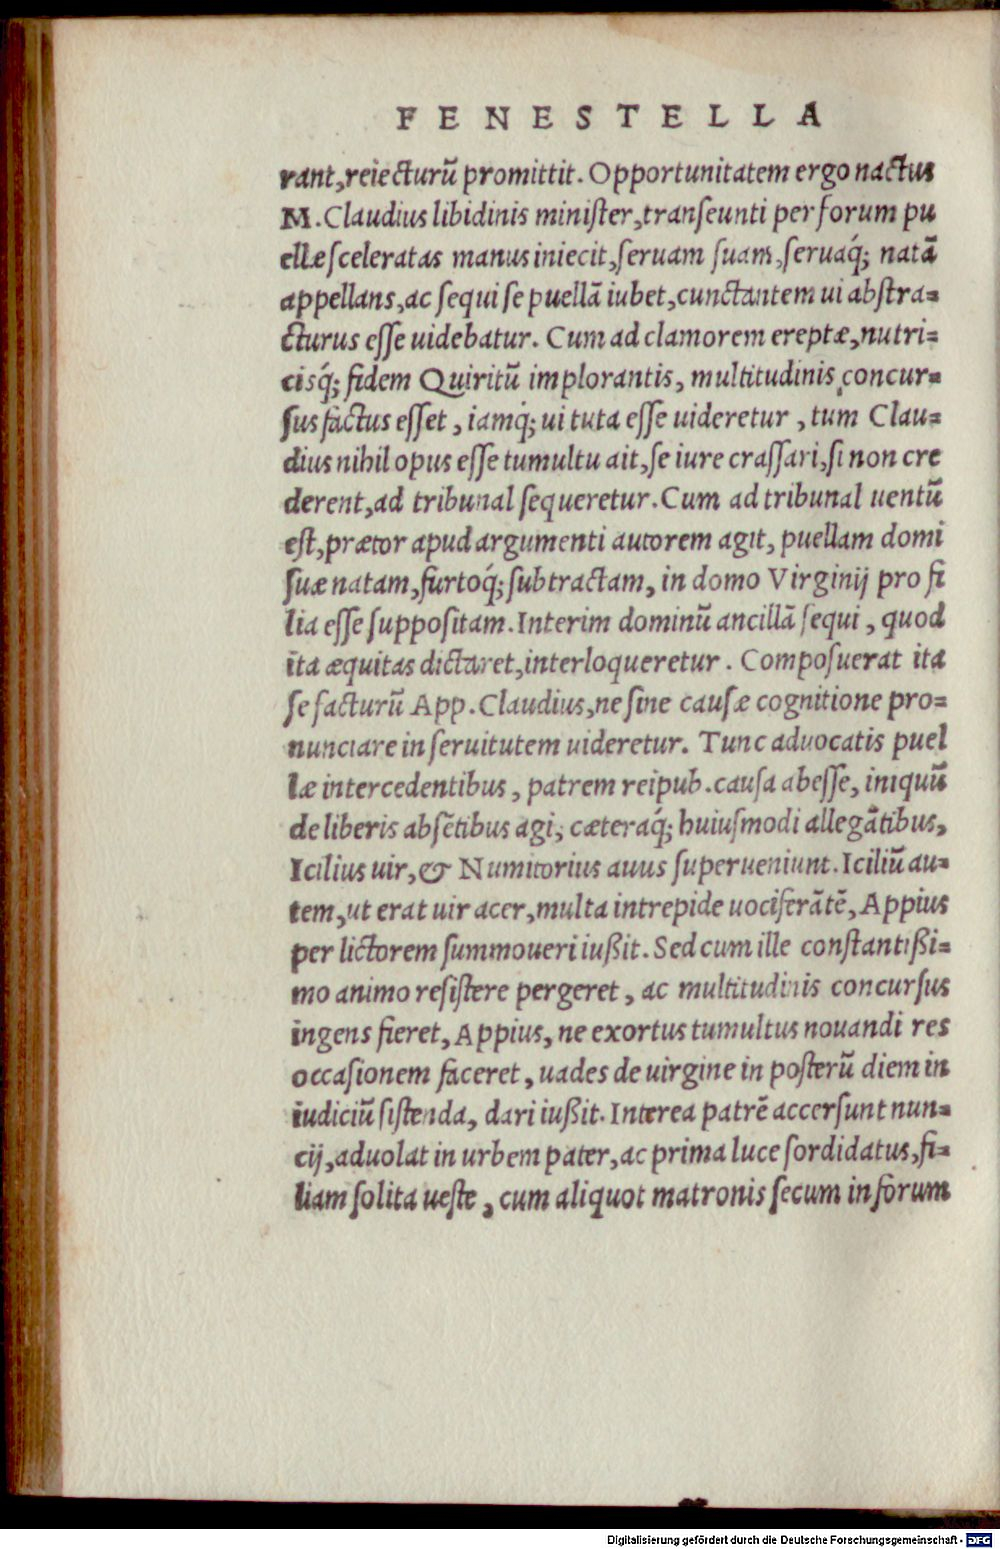 FENESTELLA
rant, reiecturũ promittit. Opportunitatem ergo nactus
M. Claudius libidinis miniſter, tranſeunti per forum pu
ellæ ſceleratas manus iniecit, ſeruam ſuam, ſeruaq́; natã
appellans, ac ſequi ſe puellã iubet, cunctantem ui abſtra-
cturus eſſe uidebatur. Cum ad clamorem ereptæ, nutri-
cisq́; fidem Quiritũ implorantis, multitudinis concur-
ſus factus eſſet, iamq́; ui tuta eſſe uideretur, tum Clau-
dius nihil opus eſſe tumultu ait, ſe iure craſſari, ſi non cre
derent, ad tribunal ſequeretur. Cum ad tribunal uentũ
eſt, prætor apud argumenti autorem agit, puellam domi
ſuæ natam, furtoq́; ſubtractam, in domo Virginij pro fi
lia eſſe ſuppoſitam. Interim dominũ ancillã ſequi, quod
ita æquitas dictaret, interloqueretur. Compoſuerat ita
ſe facturũ App. Claudius, ne ſine cauſæ cognitione pro-
nunciare in ſeruitutem uideretur. Tunc aduocatis puel
læ intercedentibus, patrem reipub. cauſa abeſſe, iniquũ
de liberis abſẽtibus agi, cæteraq́; huiuſmodi allegãtibus,
Icilius uir, & Numitorius auus ſuperueniunt. Iciliũ au-
tem, ut erat uir acer, multa intrepide uociferãtẽ, Appius
per lictorem ſummoueri iußit. Sed cum ille conſtantißi-
mo animo reſiſtere pergeret, ac multitudinis concurſus
ingens fieret, Appius, ne exortus tumultus nouandi res
occaſionem faceret, uades de uirgine in poſterũ diem in
iudiciũ ſiſtenda, dari iußit. Interea patrẽ accerſunt nun-
cij, aduolat in urbem pater, ac prima luce ſordidatus, fi-
liam ſolita ueſte, cum aliquot matronis ſecum in forum
Digitalisierung gefördert durch die Deutsche Forschungsgemeinschaft - DFG